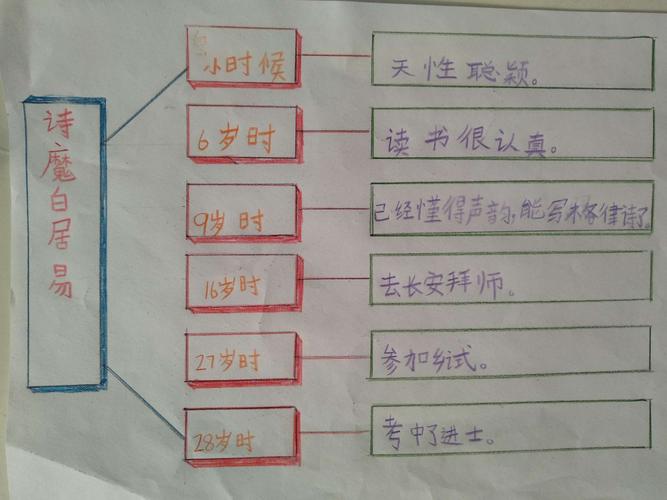 诗魔白居易
小时候
天性聪颖。
6岁时
读书很认真。
9岁时
己经懂得声韵,能写格律诗了
16岁时
去长安拜师。
27岁时
参加乡试。
28岁时
考中了进士。